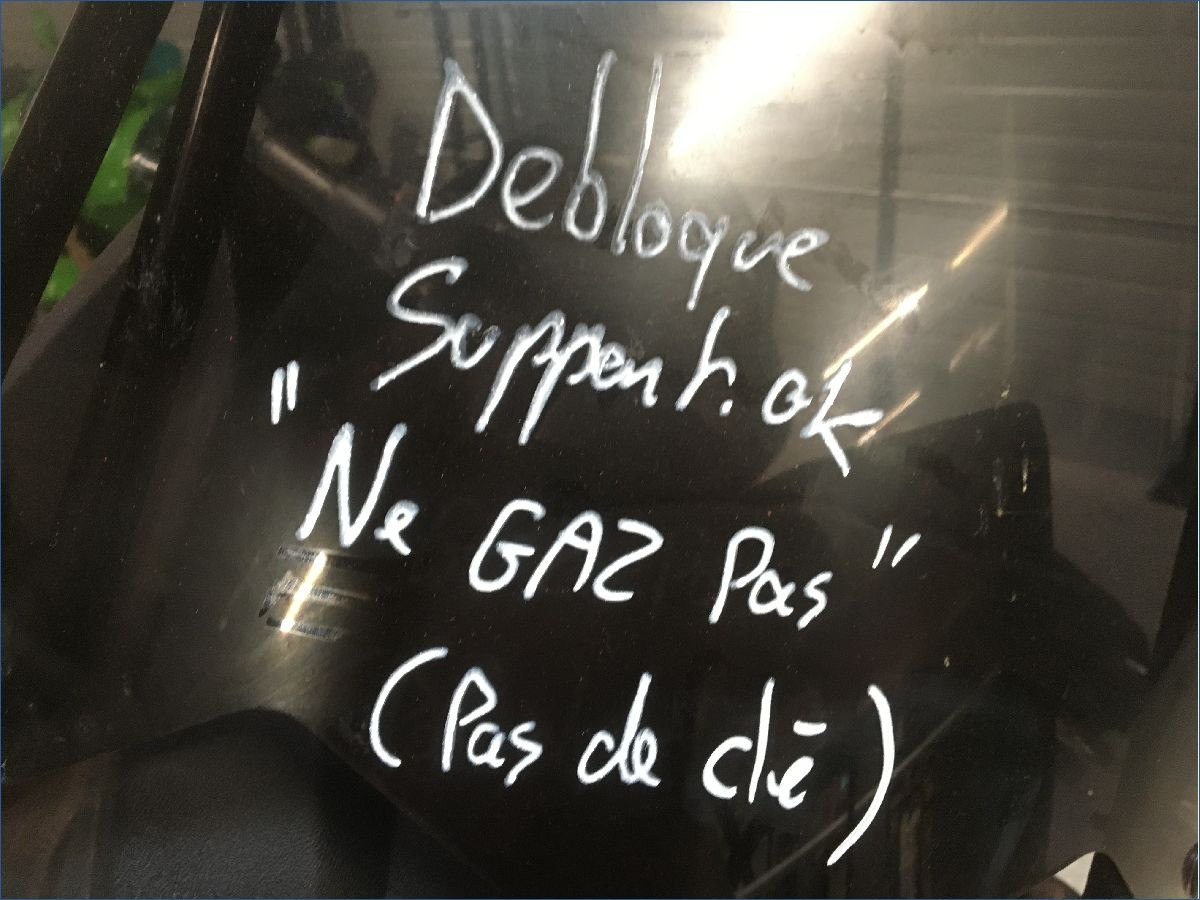 Debloque
Suppent. ok
"Ne GAZ Pas"
(Pas de clé)